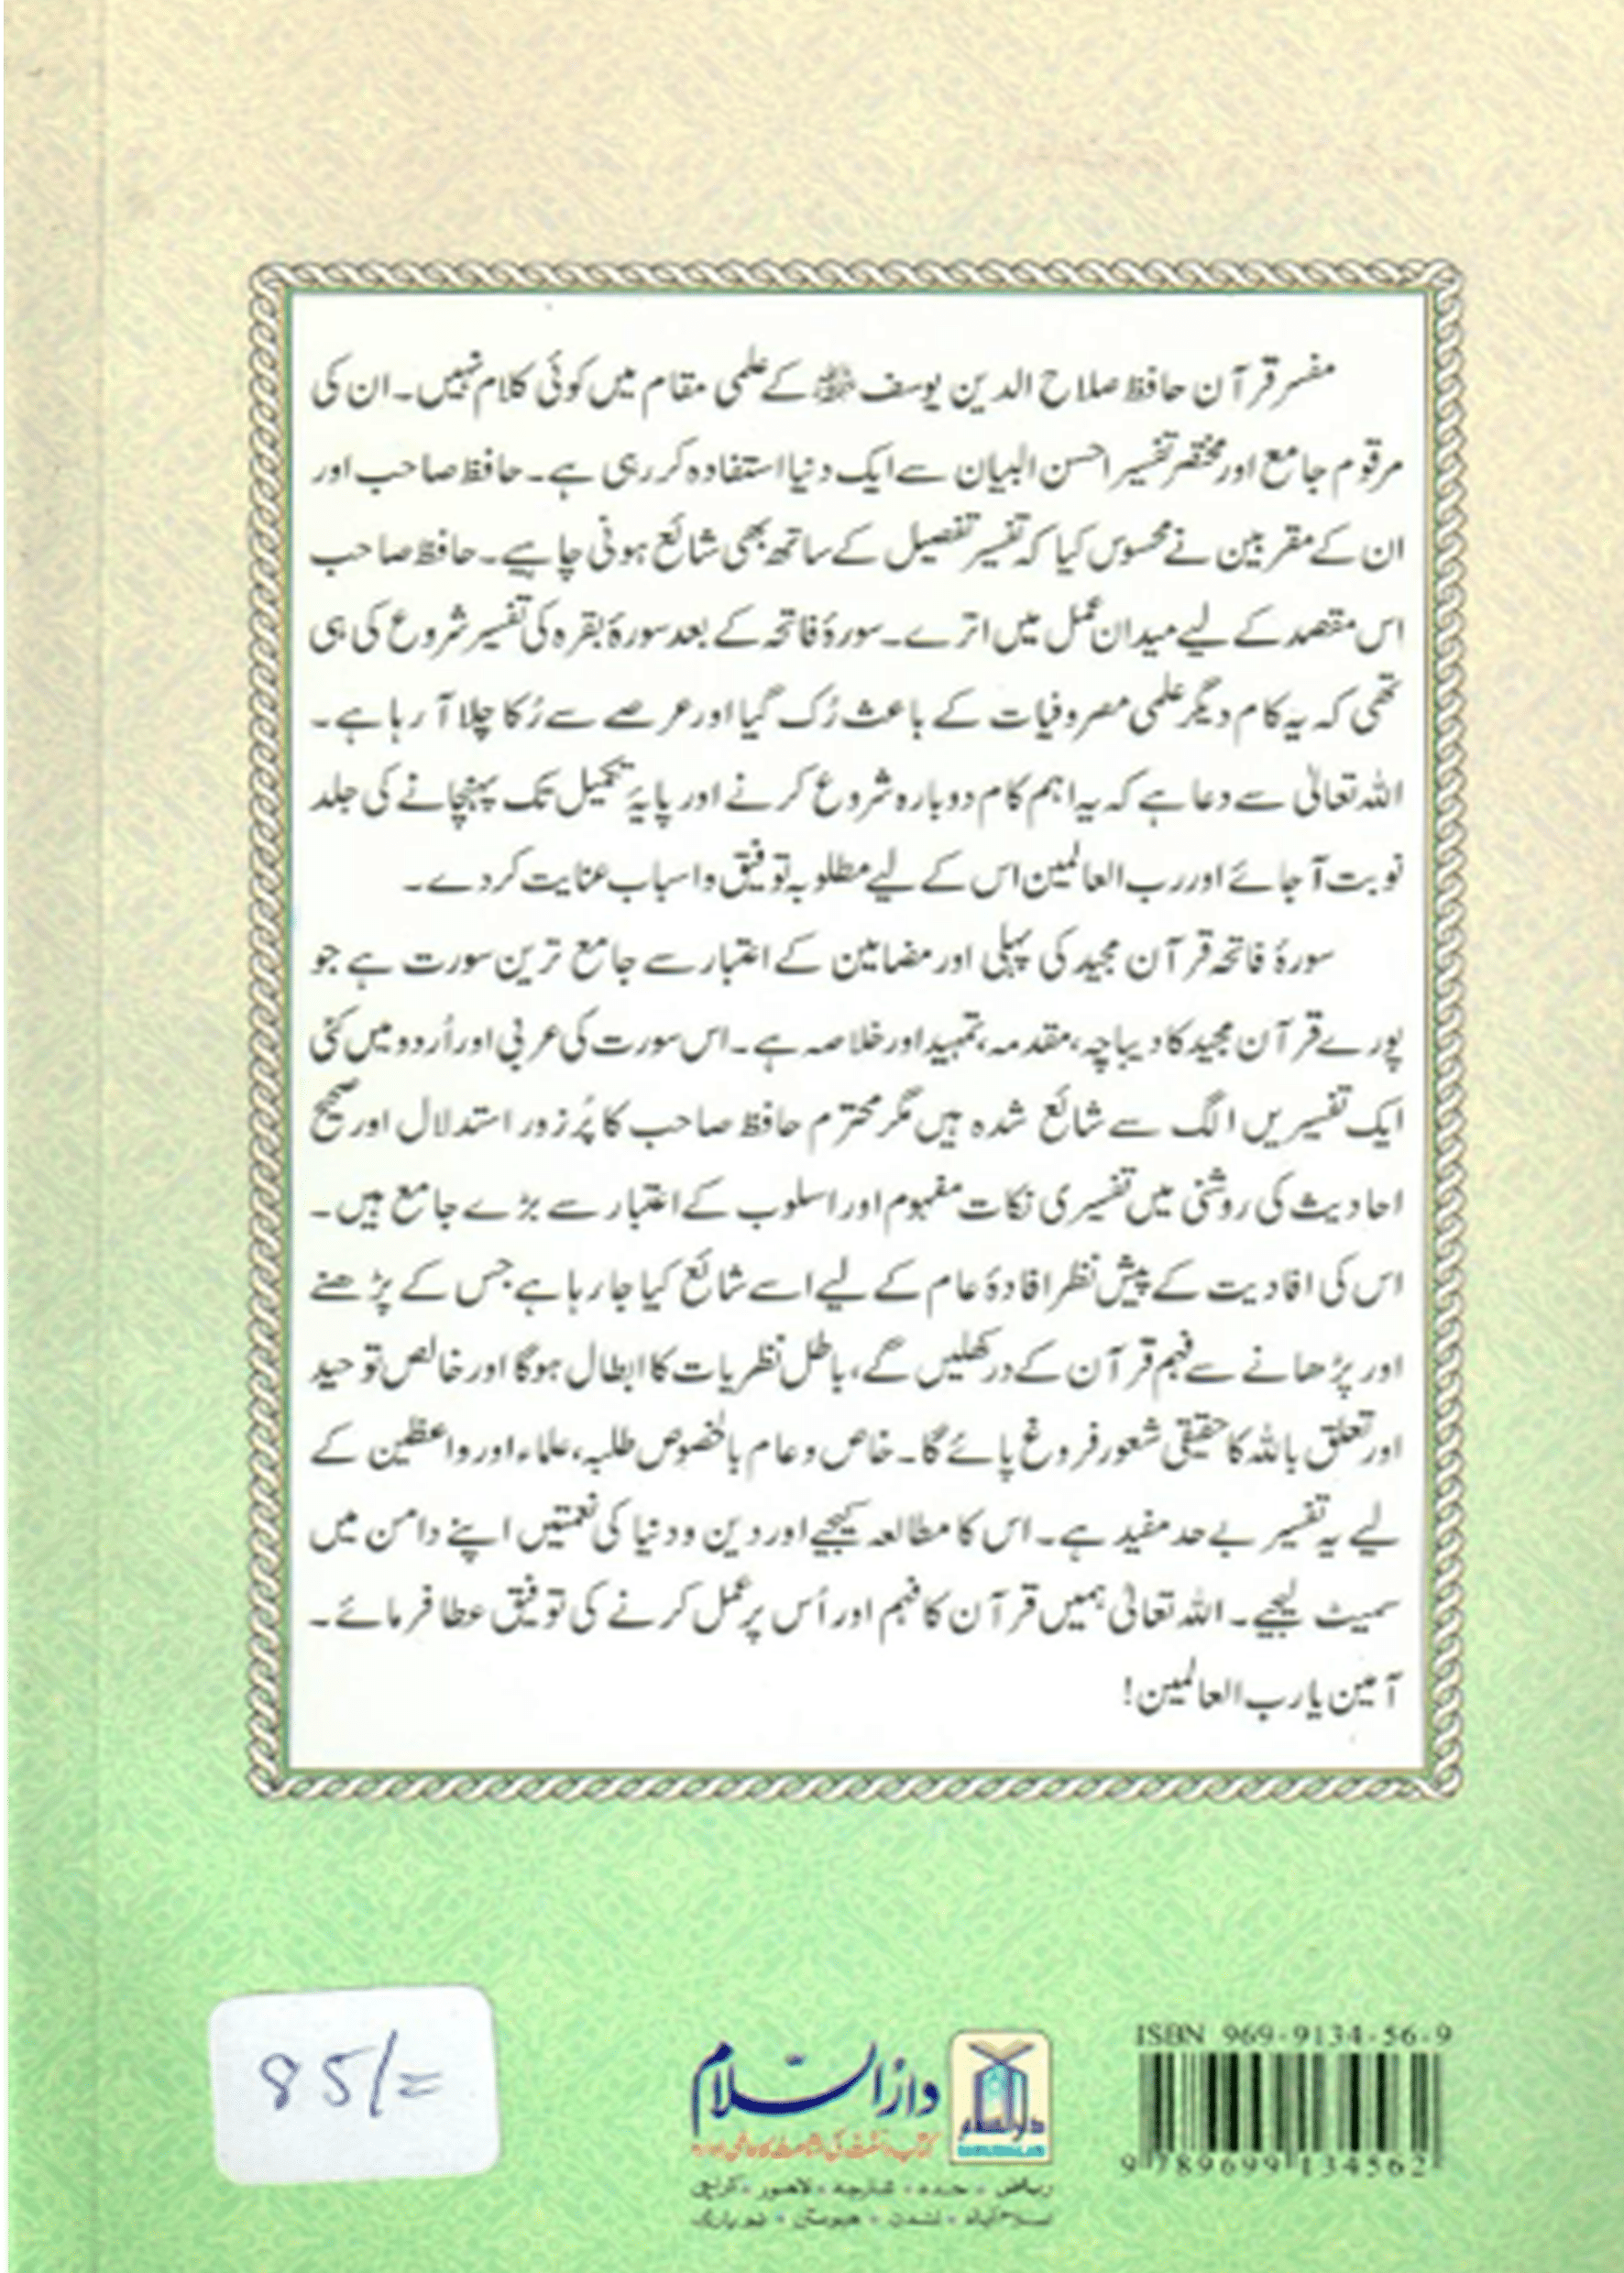 مفسر قرآن حافظ صلاح الدین یوسف ﷾ کے علمی مقام میں کوئی کلام نہیں۔ ان کی
مرقوم جامع اور مختصر تفسیر احسن البیان سے ایک دنیا استفادہ کر رہی ہے۔ حافظ صاحب اور
ان کے مقربین نے محسوس کیا کہ تفسیر تفصیل کے ساتھ بھی شائع ہونی چاہیے۔ حافظ صاحب
اس مقصد کے لیے میدان عمل میں اترے۔ سورۂ فاتحہ کے بعد سورۂ بقرہ کی تفسیر شروع کی ہی
تھی کہ یہ کام دیگر علمی مصروفیات کے باعث رُک گیا اور عرصے سے رُکا چلا آ رہا ہے۔
اللہ تعالیٰ سے دعا ہے کہ یہ اہم کام دوبارہ شروع کرنے اور پایۂ تکمیل تک پہنچانے کی جلد
نوبت آجائے اور رب العالمین اس کے لیے مطلوبہ توفیق و اسباب عنایت کردے۔
سورۂ فاتحہ قرآن مجید کی پہلی اور مضامین کے اعتبار سے جامع ترین سورت ہے جو
پورے قرآن مجید کا دیباچہ، مقدمہ، تمہید اور خلاصہ ہے۔ اس سورت کی عربی اور اُردو میں کئی
ایک تفسیریں الگ سے شائع شدہ ہیں مگر محترم حافظ صاحب کا پُر زور استدلال اور صحیح
احادیث کی روشنی میں تفسیری نکات مفہوم اور اسلوب کے اعتبار سے بڑے جامع ہیں۔
اس کی افادیت کے پیش نظر افادۂ عام کے لیے اسے شائع کیا جا رہا ہے جس کے پڑھنے
اور پڑھانے سے فہم قرآن کے در کھلیں گے، باطل نظریات کا ابطال ہوگا اور خالص توحید
اور تعلق باللہ کا حقیقی شعور فروغ پائے گا۔ خاص و عام بالخصوص طلبہ، علماء اور واعظین کے
لیے یہ تفسیر بے حد مفید ہے۔ اس کا مطالعہ کیجیے اور دین و دنیا کی نعمتیں اپنے دامن میں
سمیٹ لیجیے۔ اللہ تعالیٰ ہمیں قرآن کا فہم اور اُس پر عمل کرنے کی توفیق عطا فرمائے۔
آمین یا رب العالمین!
85/=
دارالسلام
دارالسلام
DARUSSALAM
کتاب و سنت کی اشاعت کا عالمی ادارہ
ریاض • جدہ • شارجہ • لاہور • کراچی
اسلام آباد • لندن • ہیوسٹن • نیو یارک
ISBN 969-9134-56-9
9 789699 134562